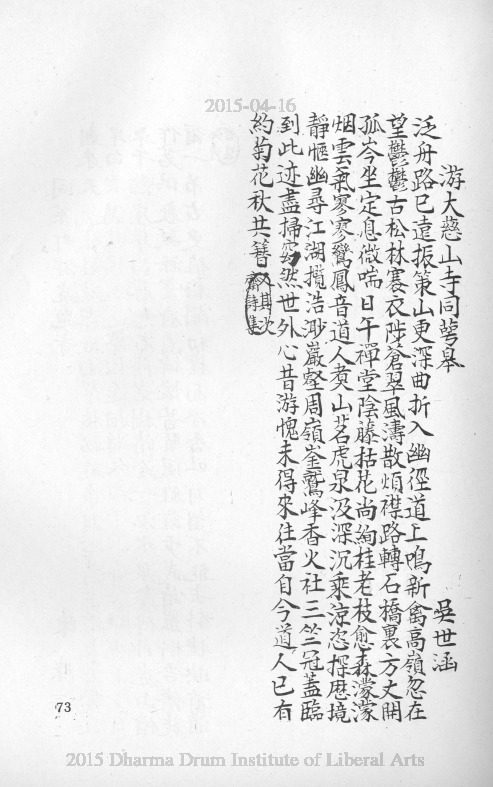 2015-04-16
游大慈山寺同蕚皋 吳世涵
泛舟路已遠振策山更深曲折入幽徑道上鳴新禽高嶺忽在
望鬱鬱古松林褰衣陟蒼翠風濤散煩襟路轉石橋裏方丈開
孤岑坐定息微喘日午禪堂陰藤枯花尚絢桂老枝愈森濛濛
烟雲氣寥寥鸞鳳音道人煑山茗虎泉汲深沉乘涼恣探歷境
靜愜幽尋江湖攬浩渺巖壑周嶺崟鷲峰香火社三竺冠蓋臨
到此迹盡掃窈然世外心昔游愧未得來往當自今道人已有
約菊花秋共簪 又其次齋詩集
73
2015 Dharma Drum Institute of Liberal Arts